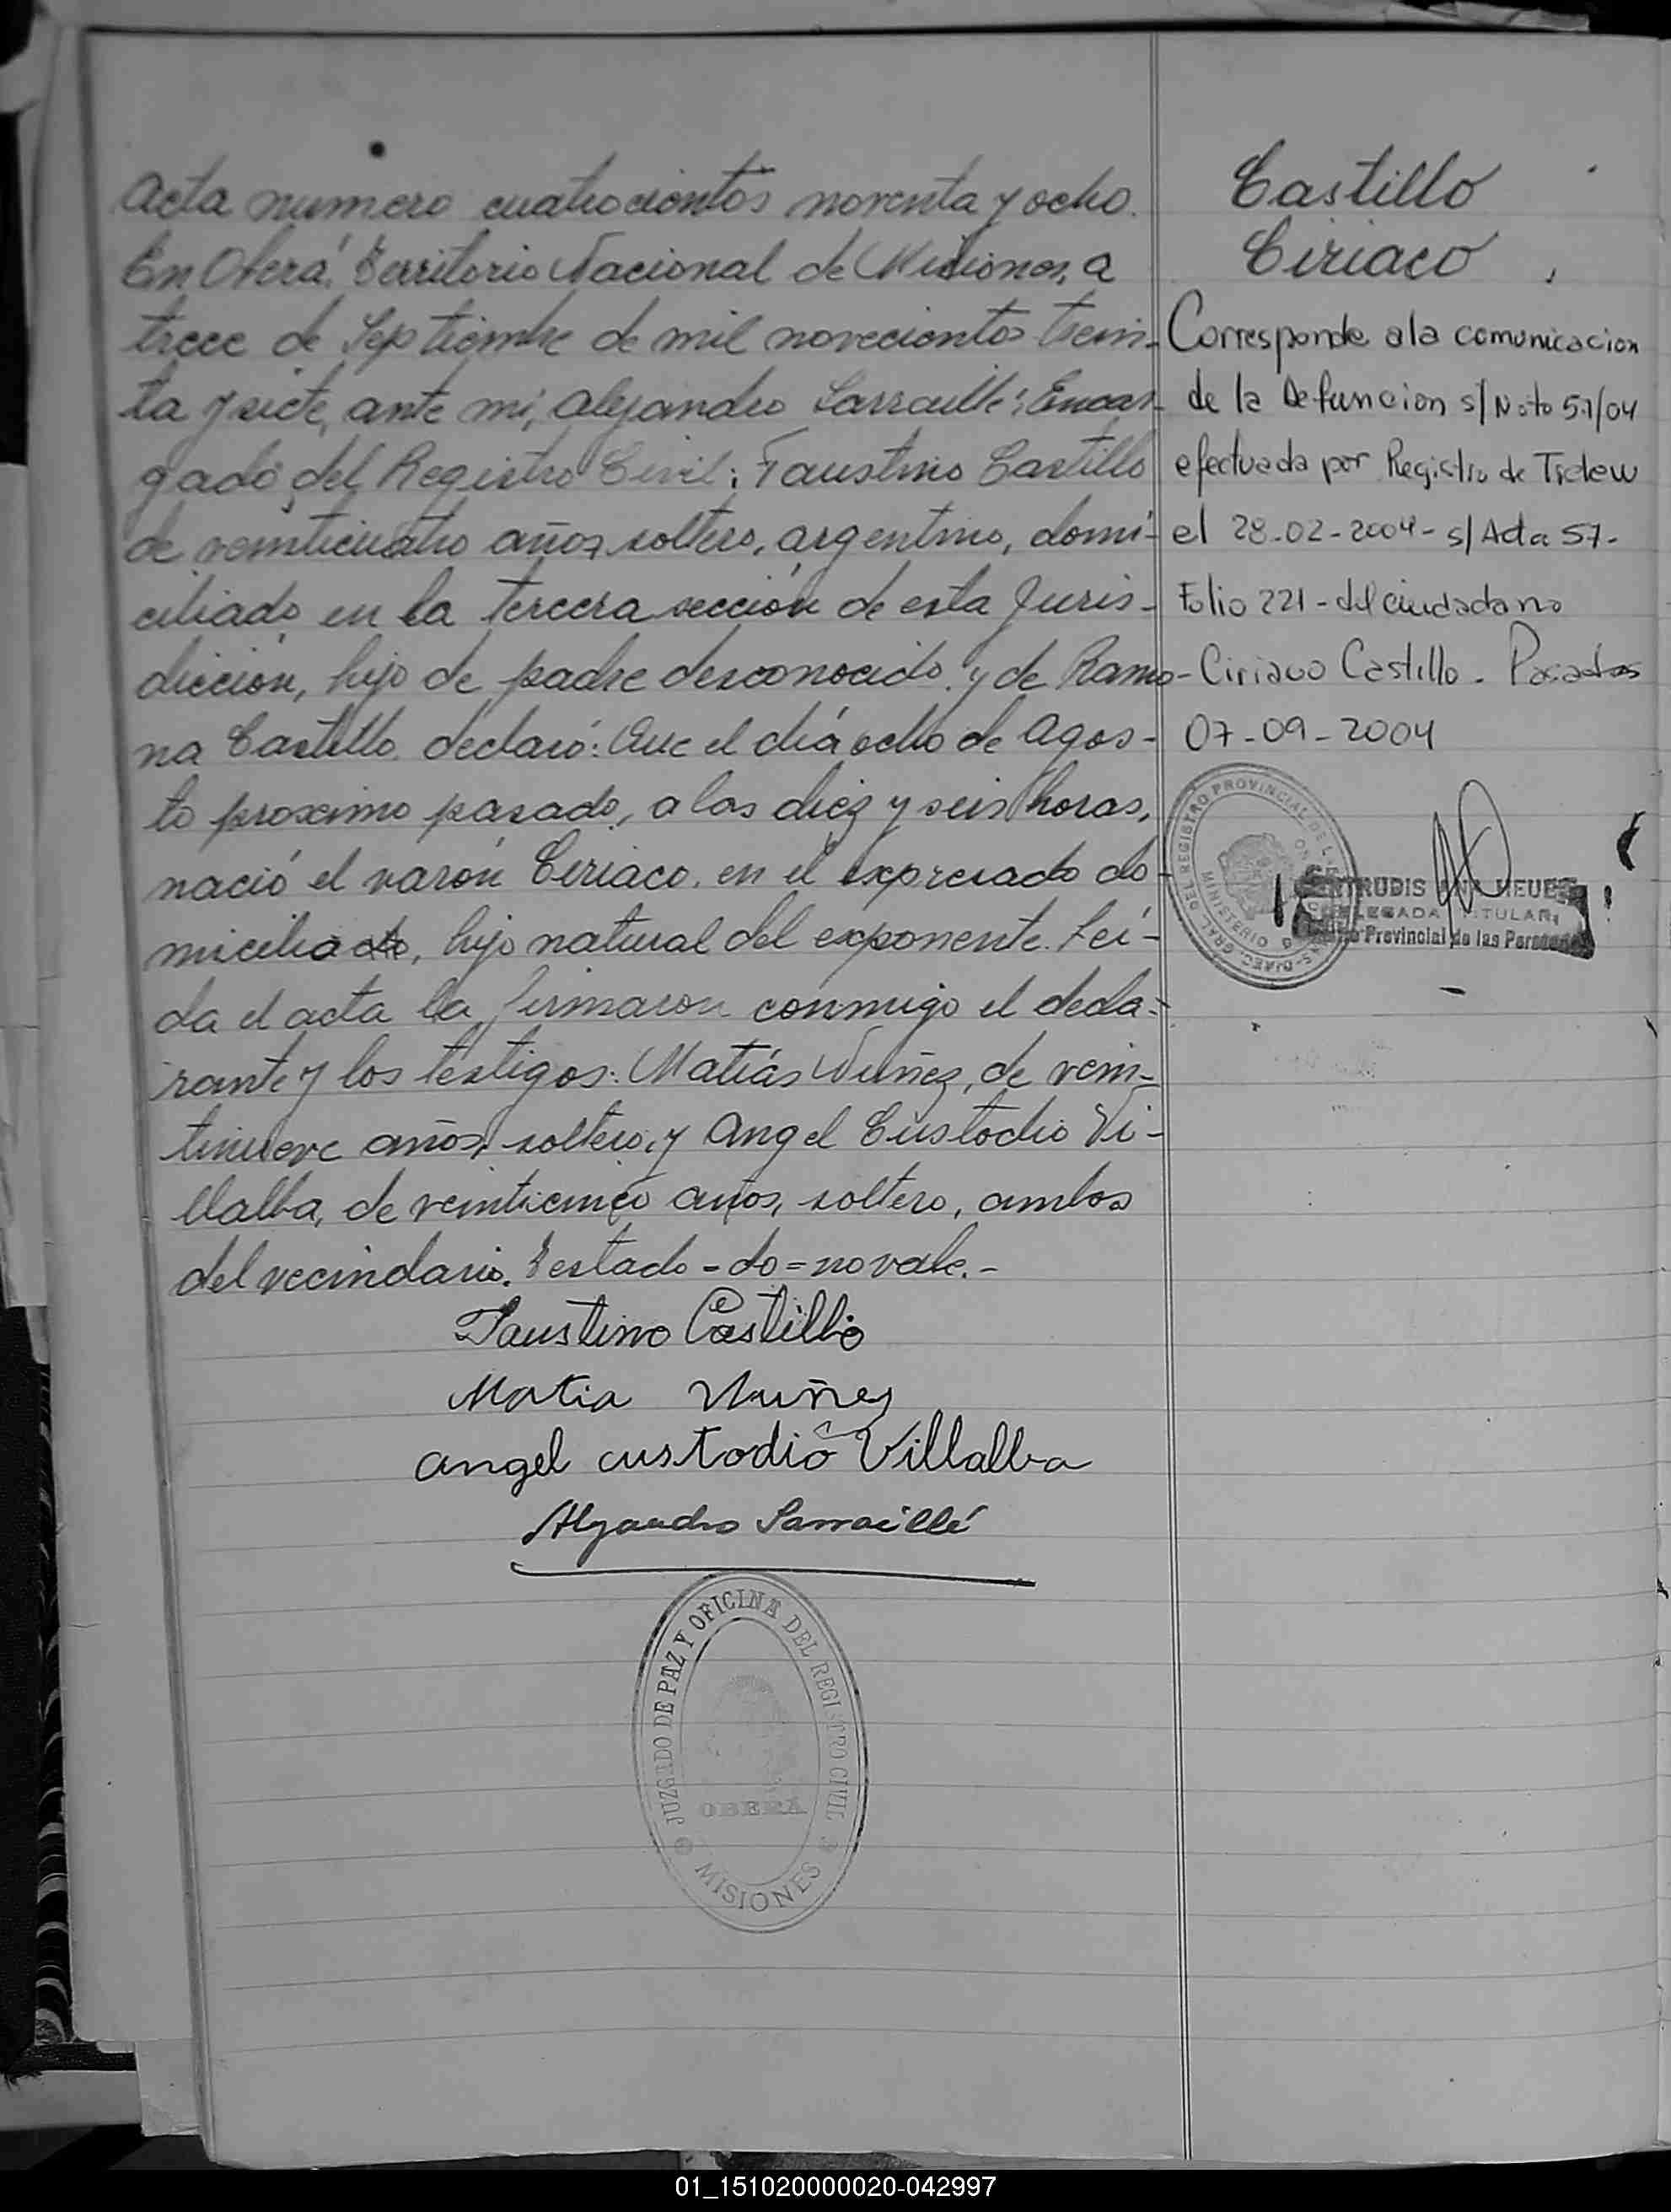 Acta numero cuatrocientos noventa y ocho.
En Oberá, Territorio Nacional de Misiones, a
trece de Septiembre de mil novecientos trein-
ta y siete, ante mi, Alejandro Larraillé, Encar-
gado del Registro Civil; Faustino Castillo
de veinticuatro años, soltero, argentino, domi-
ciliado en la tercera sección de esta Juris-
dicción, hijo de padre desconocido y de Ramo-
na Castillo, declaró: Que el día ocho de Agos-
to proximo pasado, a las diez y seis horas,
nació el varón Ciriaco, en el expresado do-
miciliado, hijo natural del exponente. Leí-
da el acta la firmaron conmigo el decla-
rante y los testigos: Matías Nuñez, de vein-
tinueve años, soltero, y Angel Custodio Vi-
llalba, de veinticinco años, soltero, ambos
del vecindario. Testado - do = no vale.-
Faustino Castillo
Matia Nuñez
angel custodio Villalba
Alejandro Larraillé
JUZGADO DE PAZ Y OFICINA DEL REGISTRO CIVIL
OBERÁ
MISIONES
Castillo
Ciriaco
Corresponde a la comunicacion
de la Defuncion s/ Nota 57/04
efectuada por Registro de Trelew
el 28-02-2004 - s/ Acta 57-
Folio 221 - del ciudadano
Ciriaco Castillo. Posadas
07-09-2004
GRAL. DEL REGISTRO PROVINCIAL DE L
MINISTERIO
TRUDIS
HEUE
LEGADA TITULAR
Provincial de las Personas
01_151020000020-042997